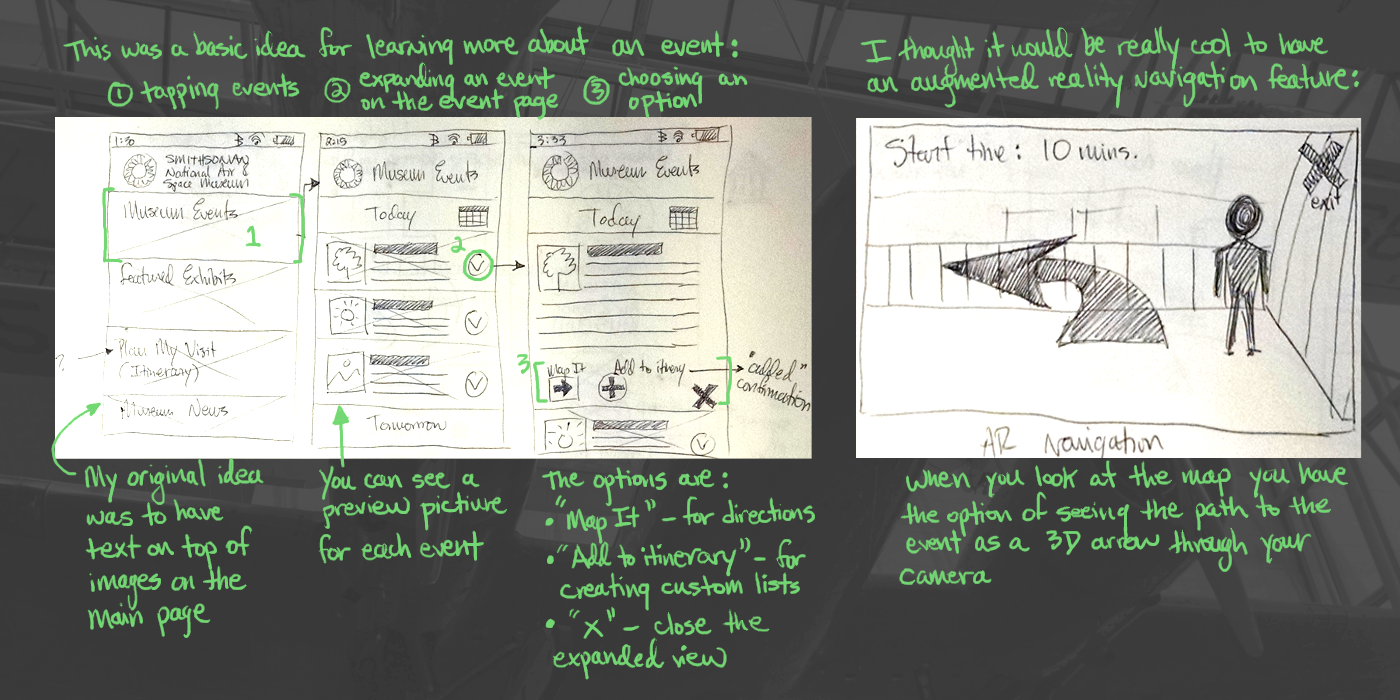 This was a basic idea for learning more about an event:
① tapping events
② expanding an event
on the event page
③ choosing an
option
1:30
SMITHSONIAN
National Air &
Space Museum
Museum Events
1
Featured Exhibits
?
Plan My Visit
(Itinerary)
Museum News
2:15
Museum Events
Today
2
Tomorrow
3:33
Museum Events
Today
3
Map It
Add to itinery
"added"
confirmation
My original idea
was to have
text on top of
images on the
main page
You can see a
preview picture
for each event
The options are:
• "Map It" – for directions
• "Add to itinerary" – for
creating custom lists
• "X" – close the
expanded view
I thought it would be really cool to have
an augmented reality navigation feature:
Start time: 10 mins.
exit
AR Navigation
when you look at the map you have
the option of seeing the path to the
event as a 3D arrow through your
camera